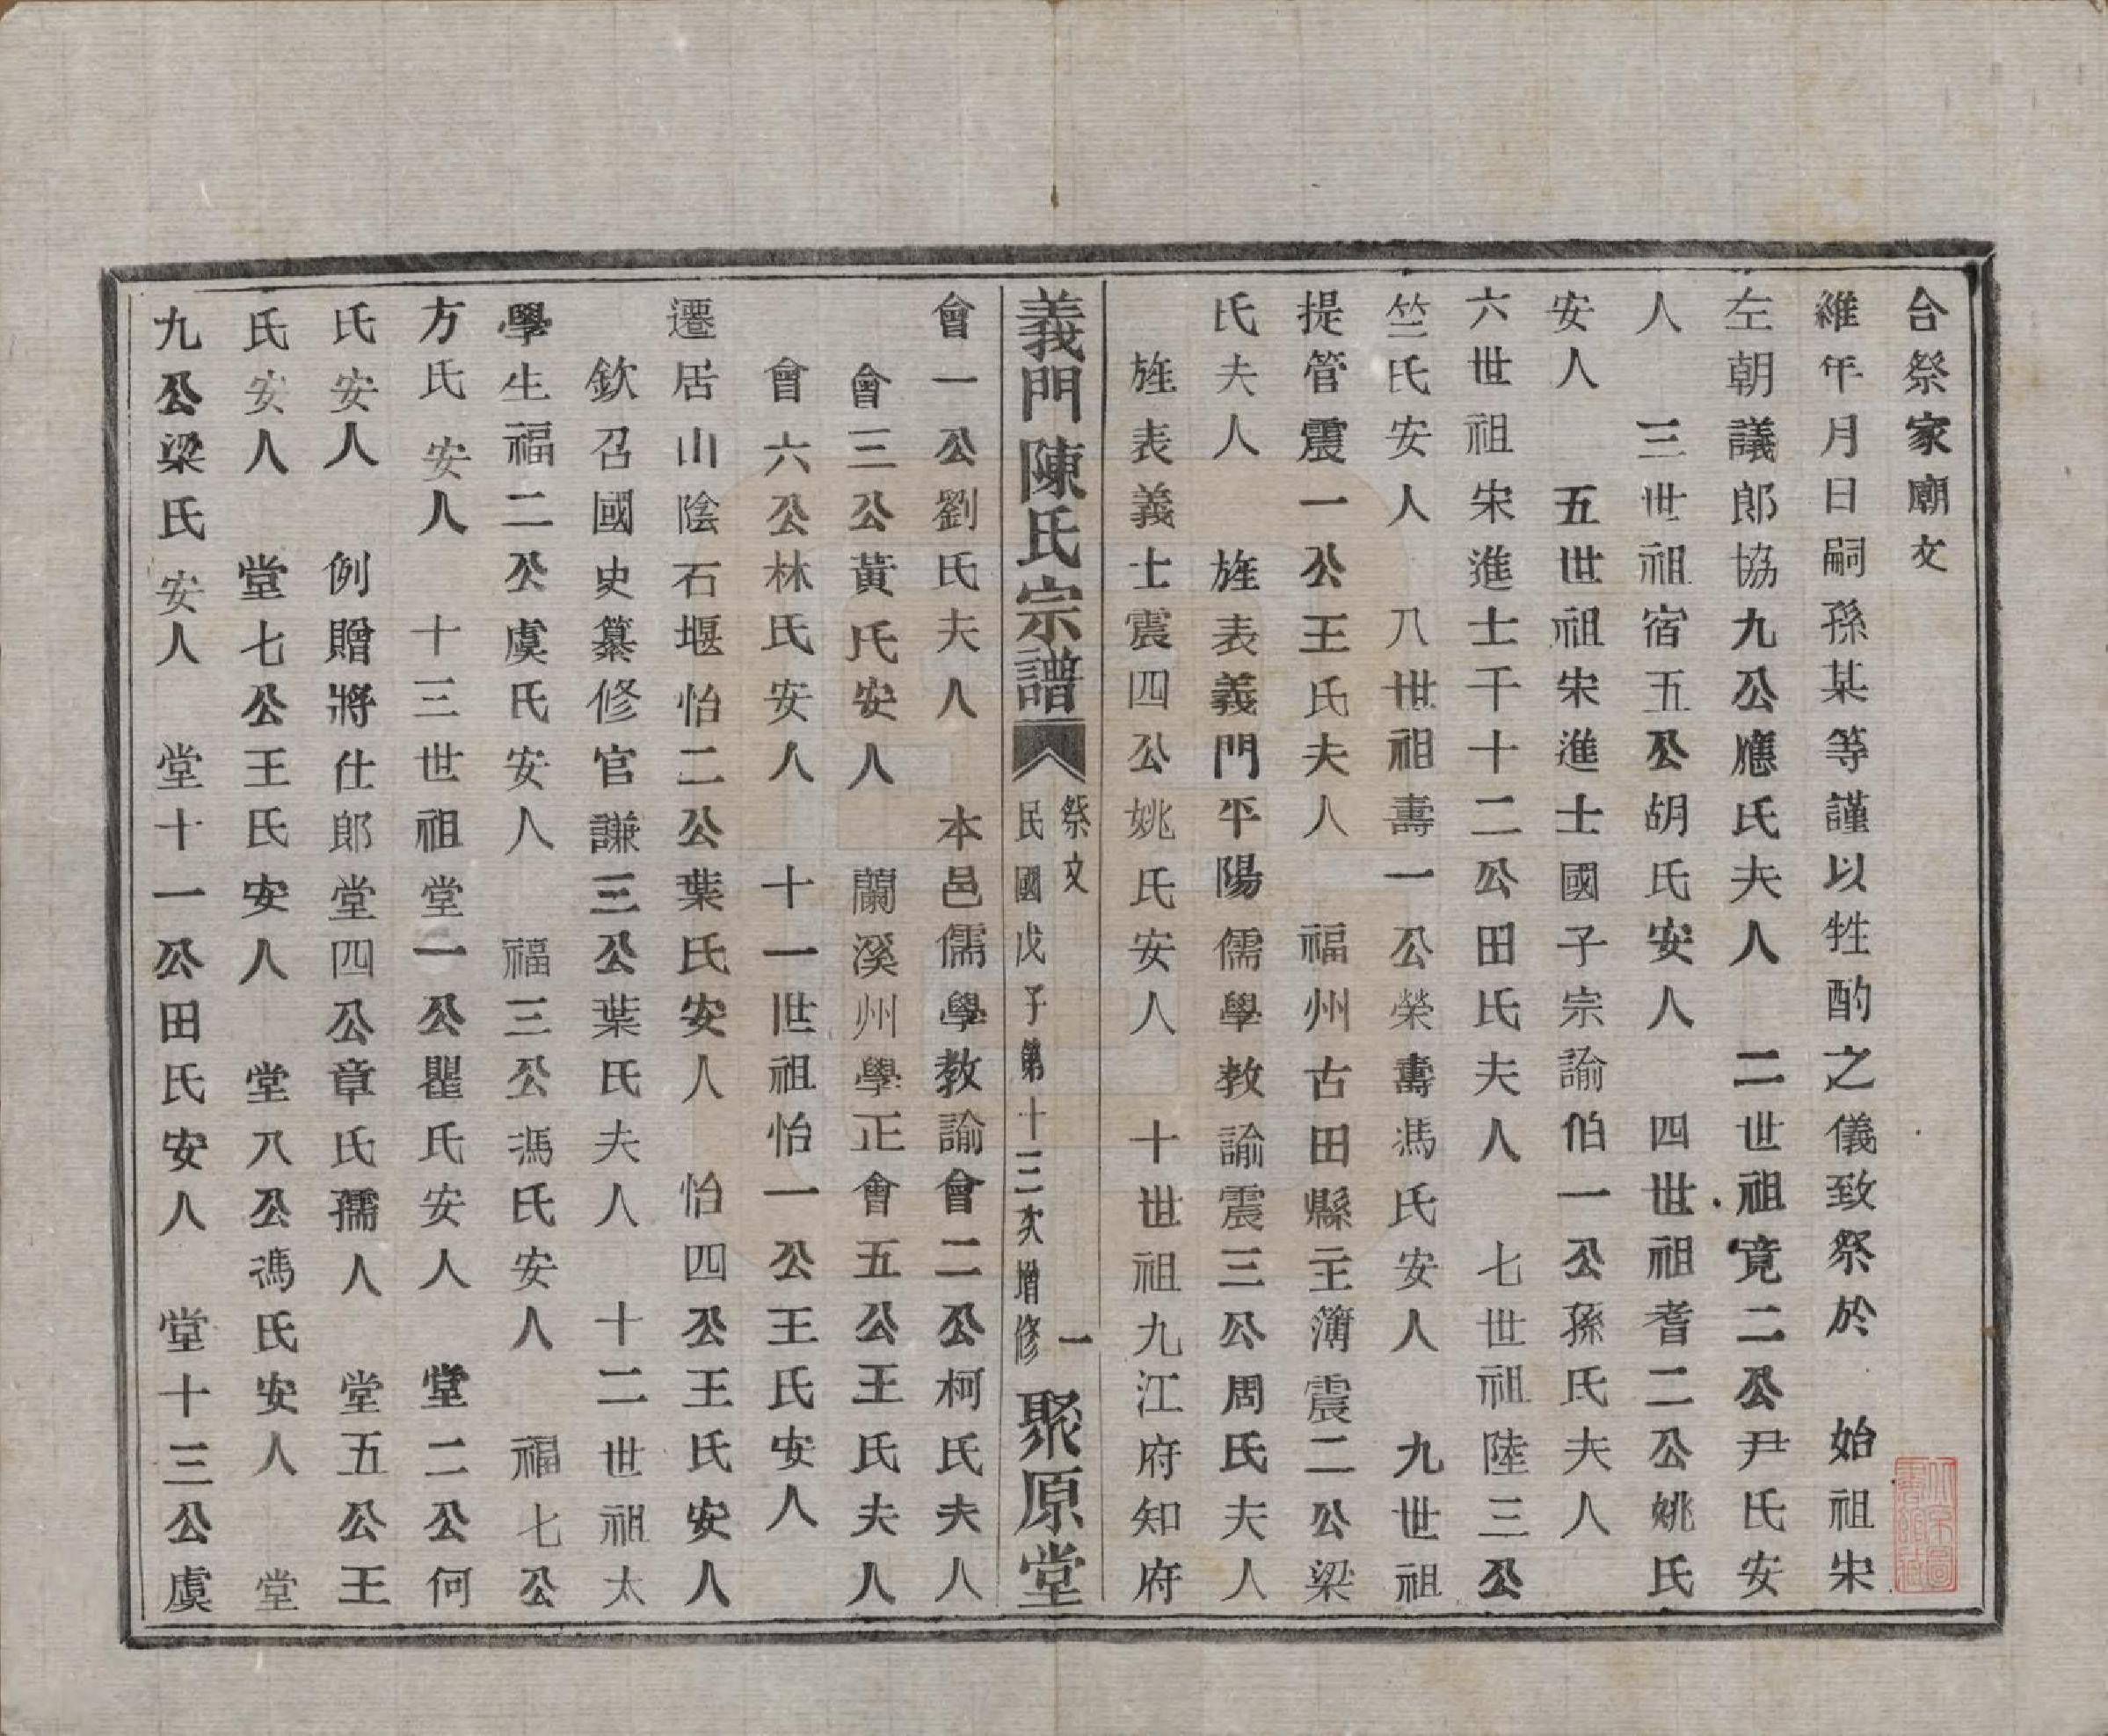 合祭家廟文
維年月日嗣孫某等謹以牲酌之儀致祭於　始祖宋
左朝議郎協九公應氏夫人　二世祖寛二公尹氏安
人　三世祖宿五公胡氏安人　四世祖耆二公姚氏
安人　五世祖宋進士國子宗諭伯一公孫氏夫人
六世祖宋進士千十二公田氏夫人　七世祖陸三公
竺氏安人　八世祖壽一公榮壽馮氏安人　九世祖
提管震一公王氏夫人　福州古田縣主簿震二公梁
氏夫人　旌表義門平陽儒學教諭震三公周氏夫人
旌表義士震四公姚氏安人　十世祖九江府知府
義門陳氏宗譜　祭文　一　民國戊子第十三次增修　聚原堂
會一公劉氏夫人　本邑儒學教諭會二公柯氏夫人
會三公黃氏安人　蘭溪州學正會五公王氏夫人
會六公林氏安人　十一世祖怡一公王氏安人
遷居山陰石堰怡二公葉氏安人　怡四公王氏安人
欽召國史纂修官謙三公葉氏夫人　十二世祖太
學生福二公虞氏安人　福三公馮氏安人　福七公
方氏安人　十三世祖堂一公瞿氏安人　堂二公何
氏安人　例贈將仕郎堂四公章氏孺人　堂五公王
氏安人　堂七公王氏安人　堂八公馮氏安人　堂
九公梁氏安人　堂十一公田氏安人　堂十三公虞